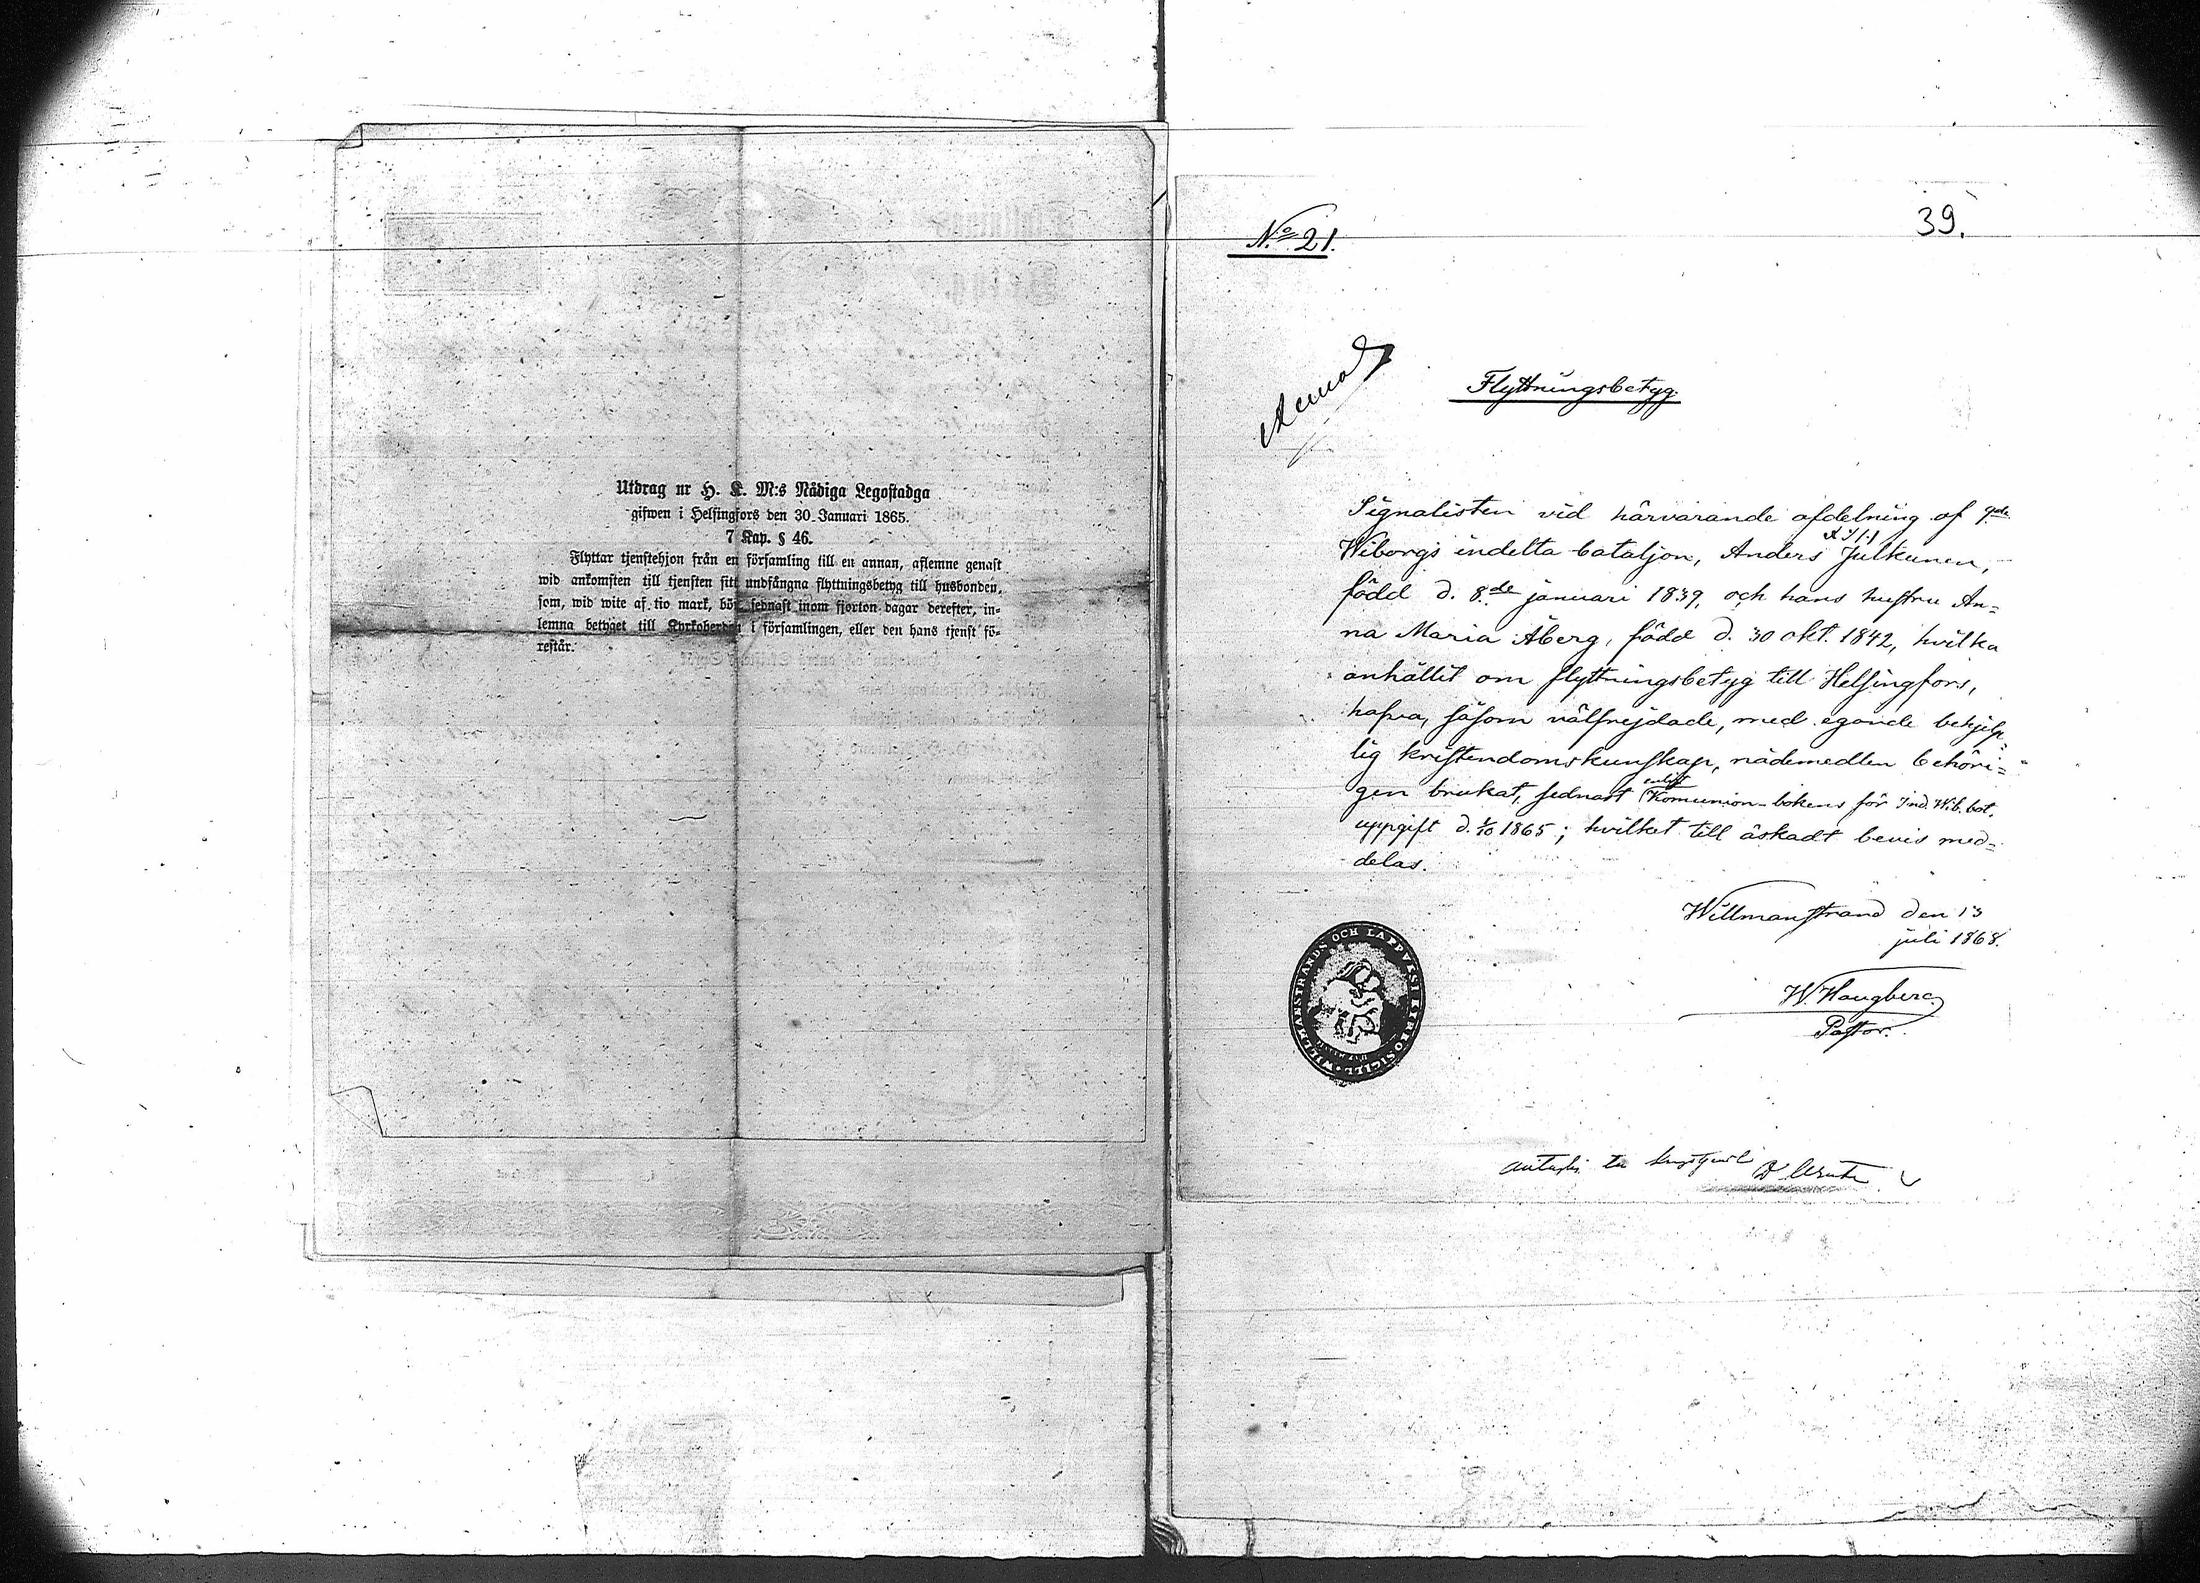 Utdrag ur H. K. M:s Nådiga Legostadga
gifwen i Helsingfors den 30 Januari 1865.
7 Kap. § 46.
Flyttar tjenstehjon från en församling till en annan, aflemne genast
wid ankomsten till tjensten sitt undfångna flyttningsbetyg till husbonden,
som, wid wite af tio mark, bör sednast inom fjorton dagar derefter, in-
lemna betyget till Kyrkoherden i församlingen, eller den hans tjenst fö-
restår.
39.
No 21.
Flyttningsbetyg.
Signalisten vid härvarande afdelning af 9de
Wiborgs indelta bataljon, Anders Julkunen,
född d. 8de januari 1839, och hans hustru An=
na Maria Åberg, född d. 30 okt. 1842, hvilka
anhållit om flyttningsbetyg till Helsingfors,
hafva, såsom välfrejdade, med egande behjelp
lig kristendomskunskap, nådemedlen behöri=
gen brukat, sednast enligt Komunion-bokens för Ind. Wib. bat.
uppgift d. 1/10 1865; hvilket till äskadt bevis med=
delas.
Willmanstrand den 13
juli 1868.
Pastor.
WILLMANSTRANDS OCH LAPPVESI KYRKOSIGILL